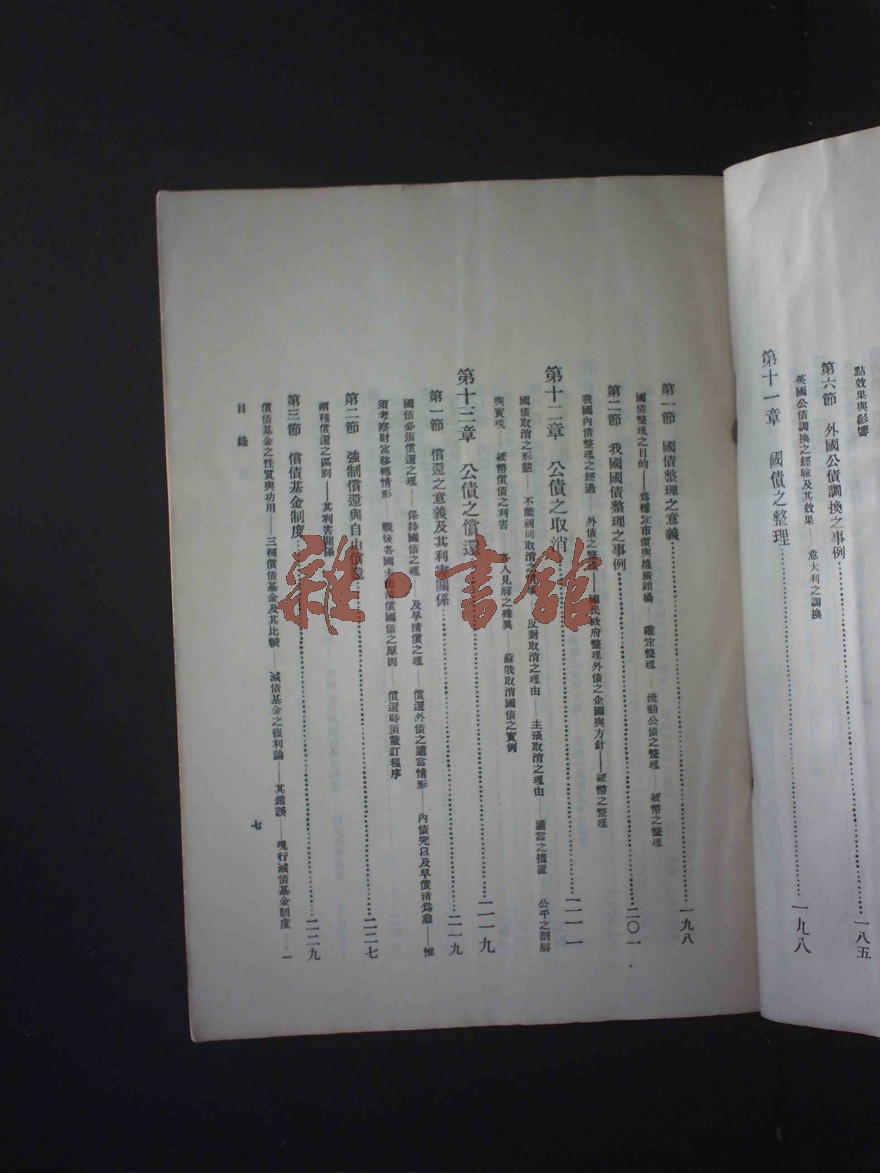 點效果與影響
第六節 外國公債調換之事例……一八五
英國公債調換之經驗及其效果——意大利之調換
第十一章 國債之整理……一九八
第一節 國債整理之意義……一九八
國債整理之目的——為穩定市價與推廣銷場——確定整理——流動公債之整理——紙幣之整理
第二節 我國國債整理之事例……二〇一
我國內債整理之經過——外債之整理——國民政府整理外債之企圖與方針——紙幣之整理
第十二章 公債之取消……二一一
國債取消之形態——不能視同取消之——反對取消之理由——主張取消之理由——適當之措置——公平之剖解
與實現——紙幣償債之利害——各人見解之殊異——蘇俄取消國債之實例
第十三章 公債之償還……二一九
第一節 償還之意義及其利害關係……二一九
國債必須償還之理——保持國債之理——及早清償之理——償還外債之適當情形——內債究以及早償清為愈——惟
須考察財富移轉情形——戰後各國償國債之原因——償還時須釐訂程序
第二節 強制償還與自由償還……二二七
兩種償還之區別——其利害關係
第三節 償債基金制度……二二九
償債基金之性質與功用——三種償債基金及其比較——減債基金之復利論——其錯誤——現行減債基金制度——一
目錄
七
雜·書館